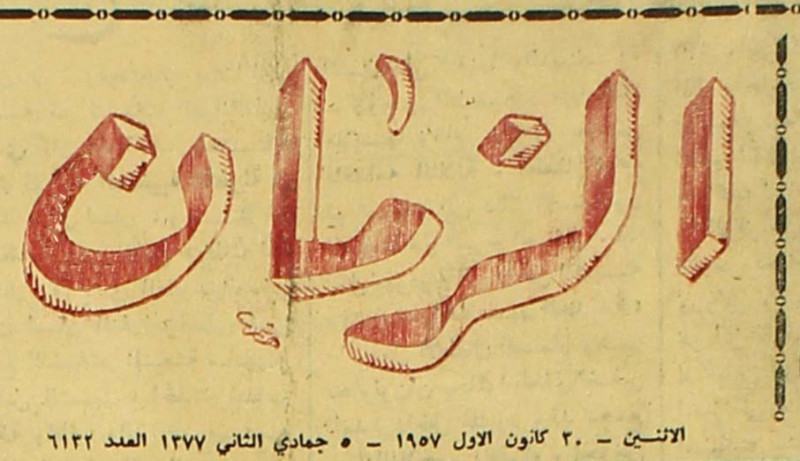 الزمان
الاثنين - ٣٠ كانون الاول ١٩٥٧ - ٥ جمادي الثاني ١٣٧٧ العدد ٦١٣٢